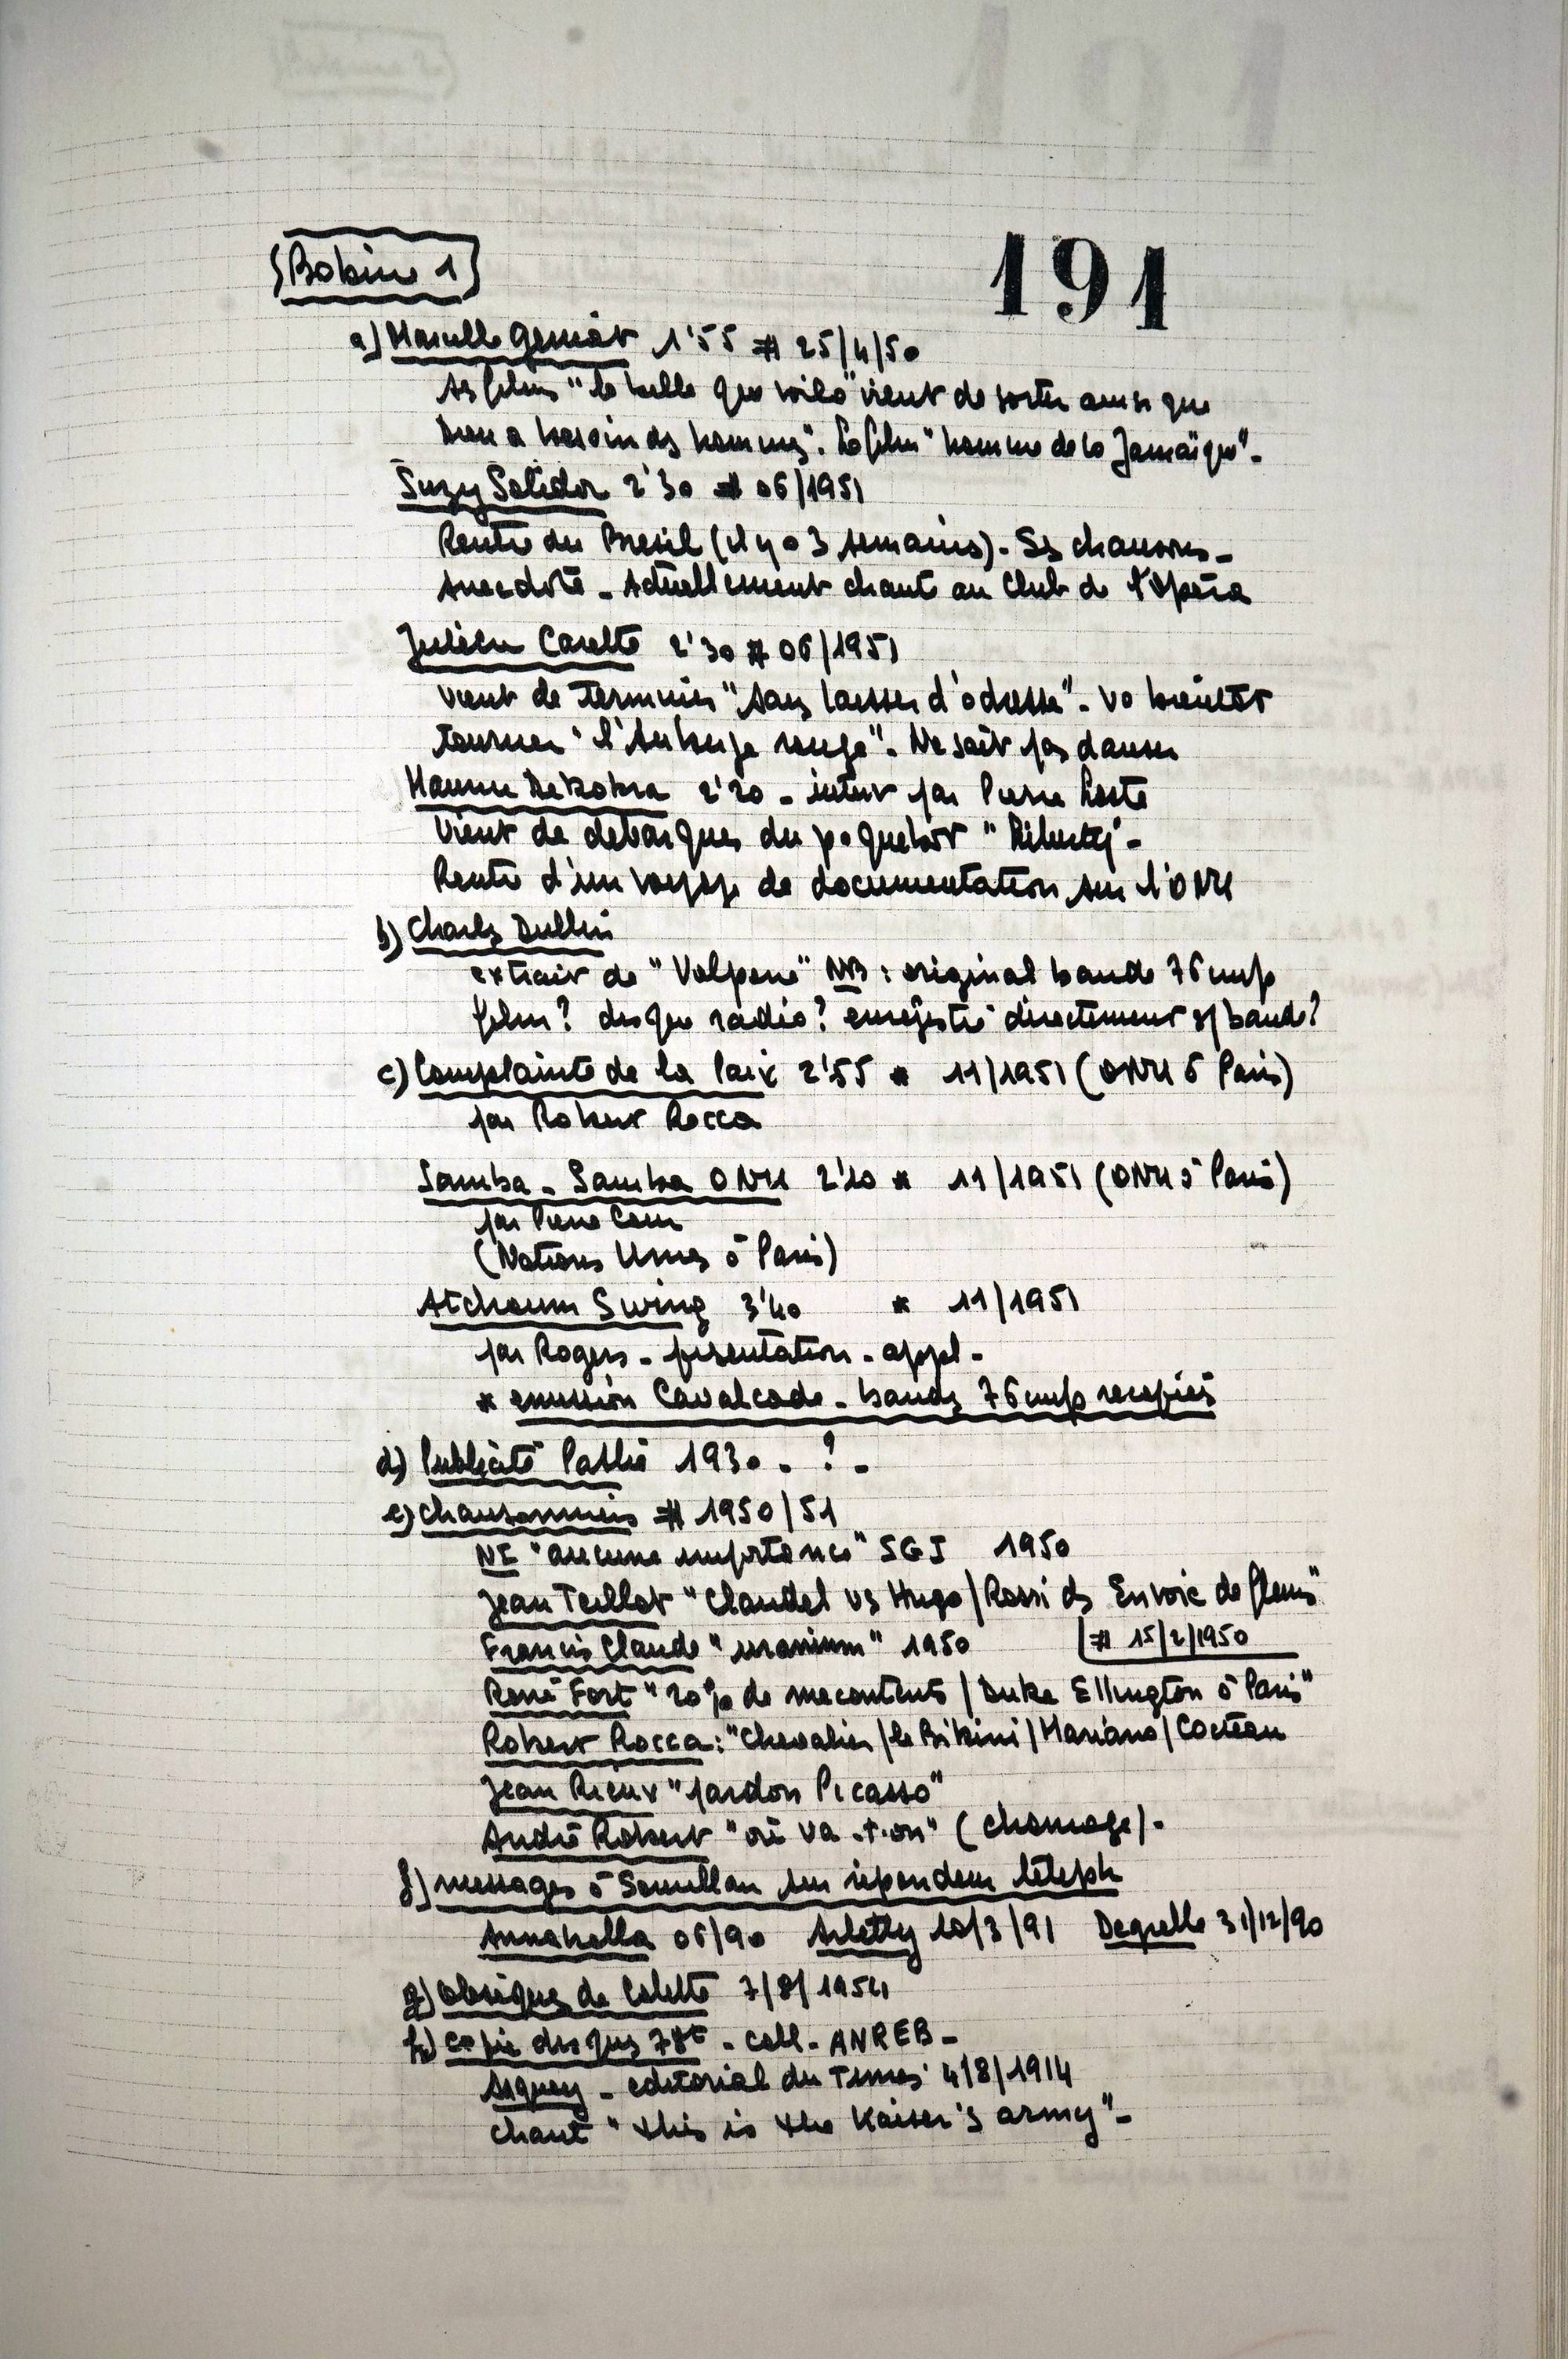 Bobine 1
191
a) Marcelle Geniat 1'55 # 25/4/50
Ses films "la belle que voilà" vient de sortir ainsi que
Dieu a besoin des hommes". Le film "homme de la Jamaïque".
Suzy Solidor 2'30 # 06/1951
Rentre du Brésil (il y a 3 semaines). Ses chansons -
Anecdote - Actuellement chante au Club de l'Opéra
Julien Carette 2'30 # 06/1951
vient de terminer "sans laisser d'adresse". va bientôt
tourner "l'Auberge rouge". Ne sait pas danser
Maurice Dekobra 2'20 - interv par Pierre
Vient de débarquer du paquebot "Liberty" -
Rentre d'un voyage de documentation sur l'ONU
b) Charles Dullin
extrait de "Volpone" NB : original bande 76 cm/s
film ? disque radio ? enregistré directement s/ bande ?
c) Complainte de la Paix 2'55 * 11/1951 (ONU à Paris)
par Robert Rocca
Samba - Samba ONU 2'20 * 11/1951 (ONU à Paris)
par Pierre Cour
(Nations Unies à Paris)
Atchoum Swing 3'40 * 11/1951
par Rogers - présentation - appl -
* émission Cavalcade - bandes 76 cm/s recopiées
d) Publicité Pathé 1930 - ? -
e) chansonniers # 1950/51
NI "aucune importance" SGJ 1950
Jean Teillot "Claudel vs Hugo / Rossi ds Envoie de fleurs"
Francis Claude "uranium" 1950 # 15/2/1950
René Fort "20% de mécontents / Duke Ellington à Paris"
Robert Rocca : "Chevalier / le Bikini / Mariano / Cocteau
Jean Rieux "pardon Picasso"
André Robert "où va-t-on" (chomage) -
f) messages à Souvillan sur répondeur téléph
Annabella 06/90 Arletty 10/3/91 Degrelle 31/12/90
g) Obsèques de Colette 7/8/1954
h) copie disques 78t - coll - ANREB -
- éditorial du Times 4/8/1914
chant "this is the Kaiser's army" -